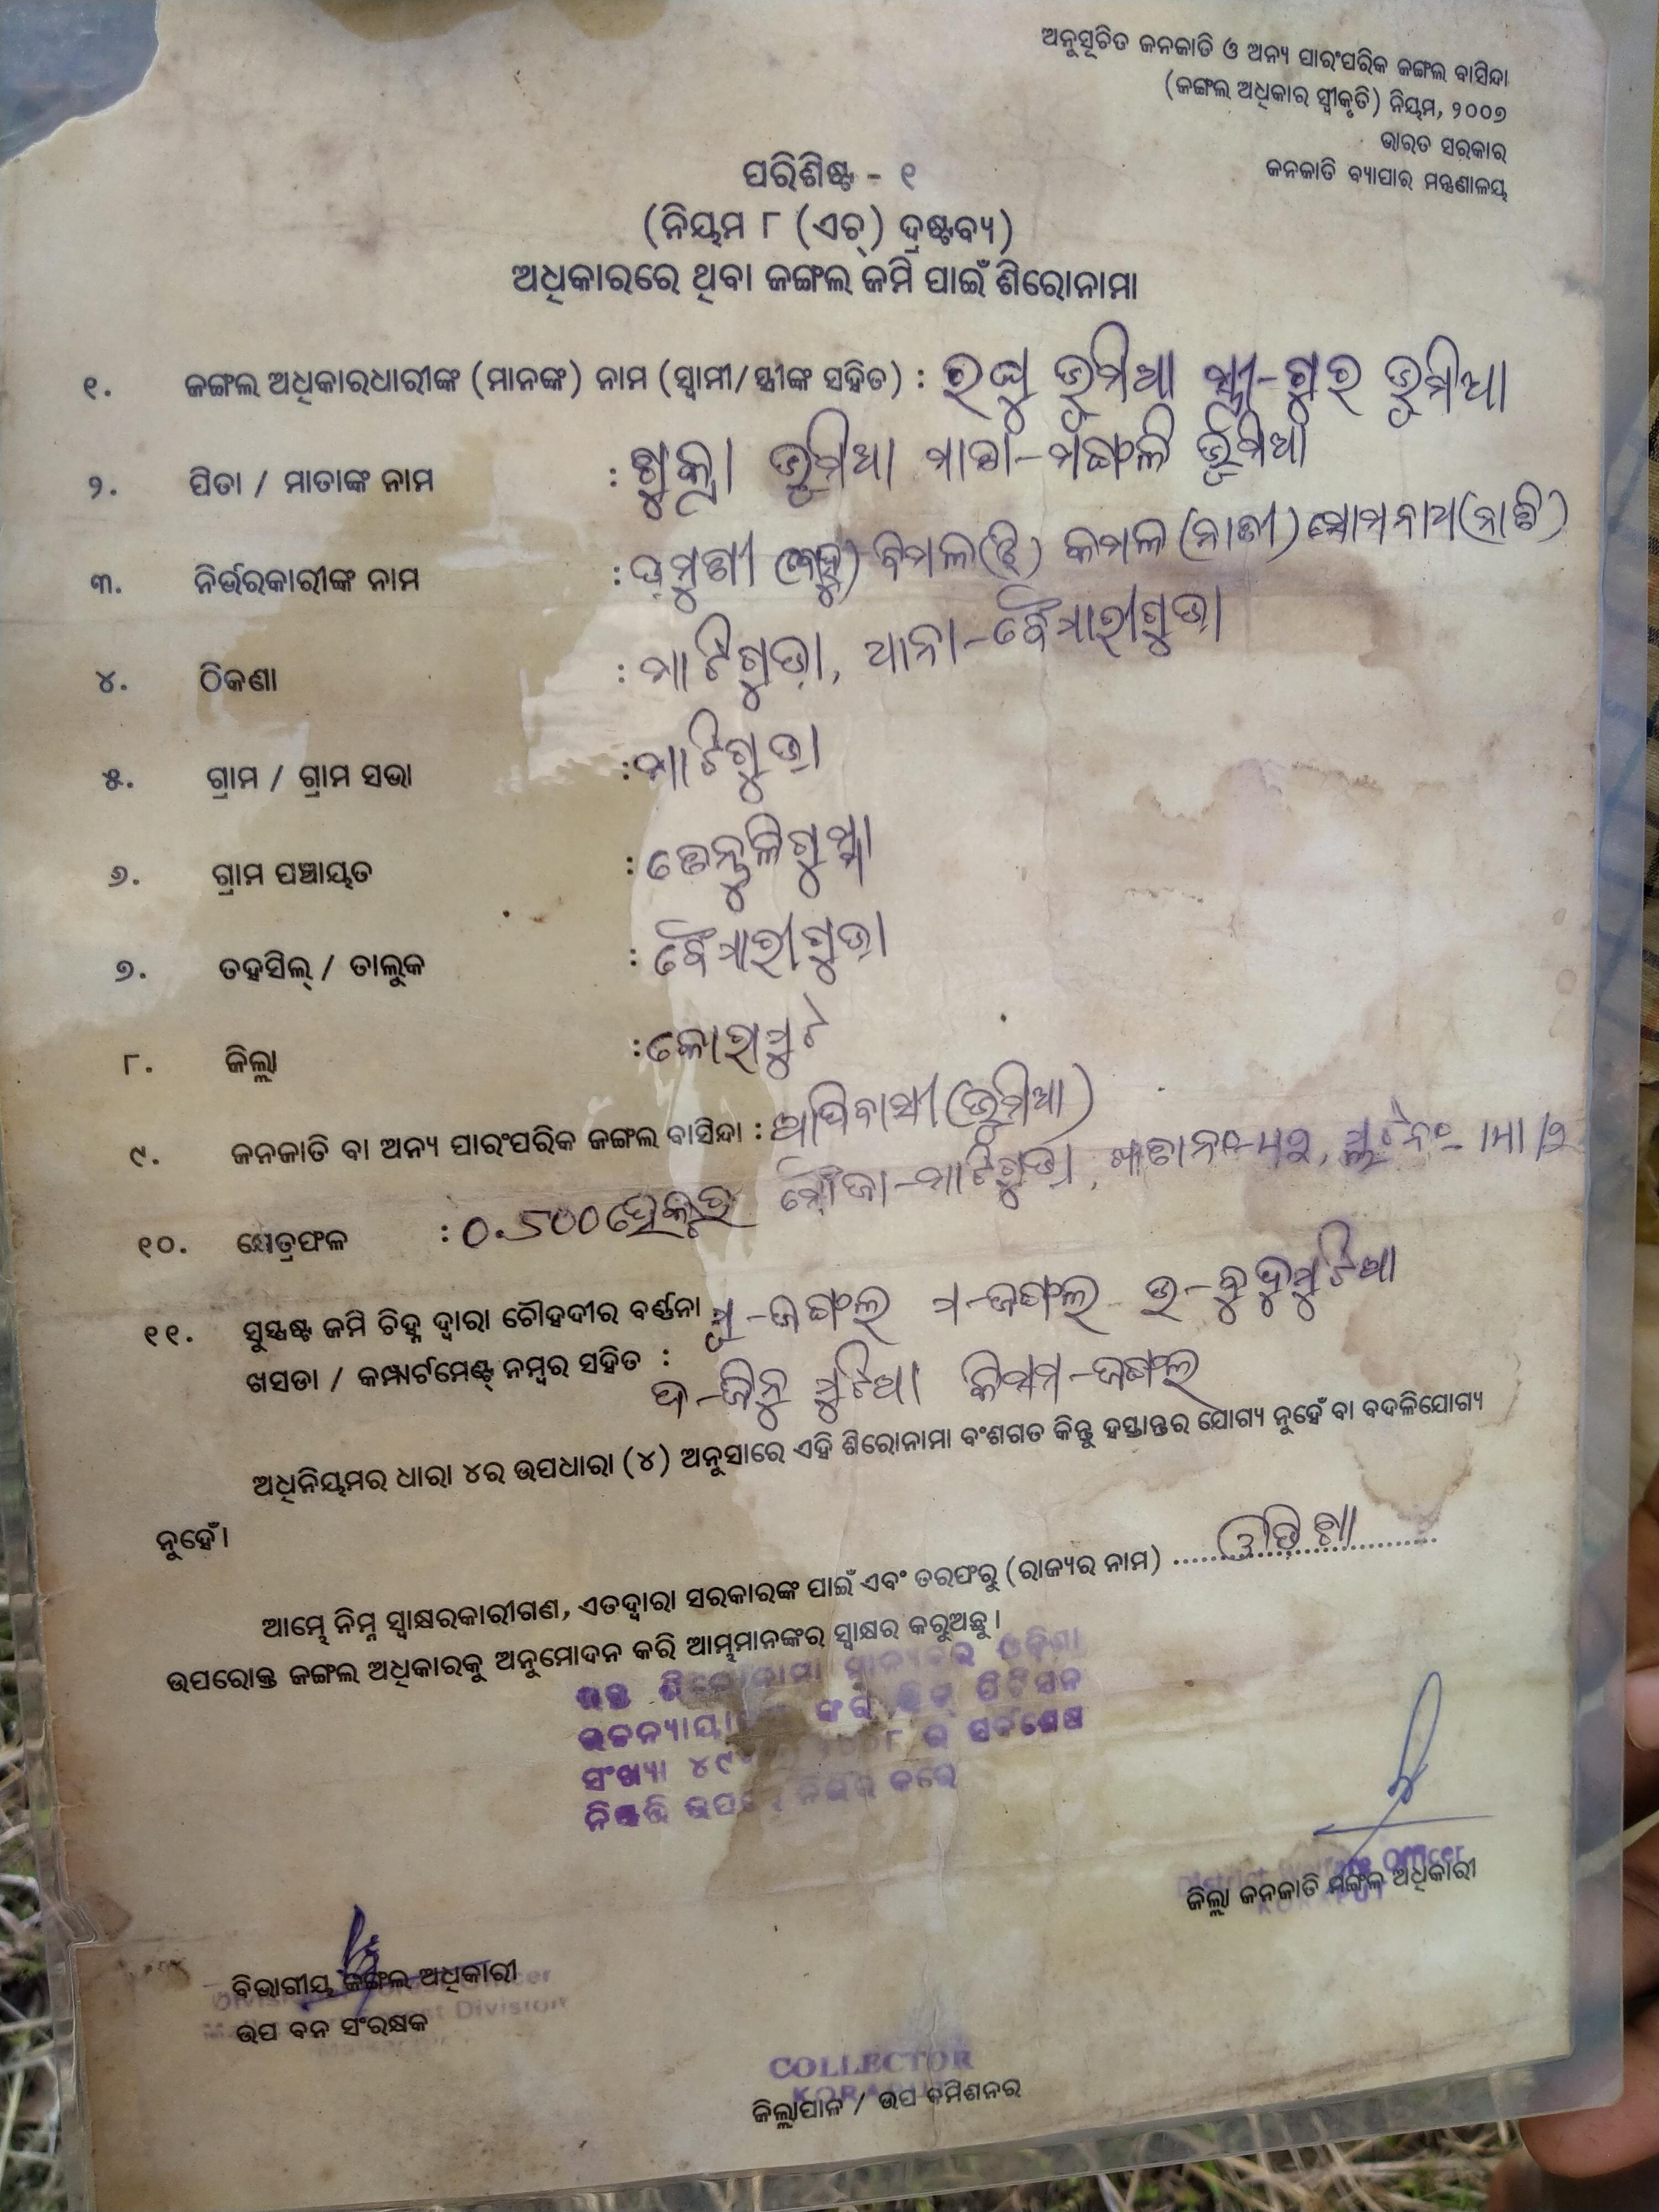 ଅନୁସୂଚିତ ଜନଜାତି ଓ ଅନ୍ୟ ପାରଂପରିକ ଜଙ୍ଗଲ ବାସିନ୍ଦା
(ଜଙ୍ଗଲ ଅଧିକାର ସ୍ୱୀକୃତି) ନିୟମ, ୨୦୦୭
ଭାରତ ସରକାର
ଜନଜାତି ବ୍ୟାପାର ମନ୍ତ୍ରଣାଳୟ
ପରିଶିଷ୍ଟ - ୧
(ନିୟମ ୮ (ଏଚ୍) ଦ୍ରଷ୍ଟବ୍ୟ)
ଅଧିକାରରେ ଥିବା ଜଙ୍ଗଲ ଜମି ପାଇଁ ଶିରୋନାମା
୧. ଜଙ୍ଗଲ ଅଧିକାରଧାରୀଙ୍କ (ମାନଙ୍କ) ନାମ (ସ୍ୱାମୀ/ସ୍ତ୍ରୀଙ୍କ ସହିତ) : ରଘୁ ଭୂମିଆ ସ୍ତ୍ରୀ-ଗୁର ଭୂମିଆ
୨. ପିତା / ମାତାଙ୍କ ନାମ : ଶୁକ୍ରା ଭୂମିଆ ମାତା-ମଙ୍ଗଳି ଭୂମିଆ
୩. ନିର୍ଭରକାରୀଙ୍କ ନାମ : (ବୋହୂ) ବିମଳା(ଝି) କମଳ (ନାତୀ) ସୋମନାଥ(ନାତି)
୪. ଠିକଣା : ମାଟିଗୁଡା, ଥାନା-ବୈପାରୀଗୁଡା
୫. ଗ୍ରାମ / ଗ୍ରାମ ସଭା : ମାଟିଗୁଡା
୬. ଗ୍ରାମ ପଞ୍ଚାୟତ : ତେନ୍ତୁଳିଗୁମ୍ମା
୭. ତହସିଲ୍ / ତାଲୁକ : ବୈପାରୀଗୁଡା
୮. ଜିଲ୍ଲା : କୋରାପୁଟ
୯. ଜନଜାତି ବା ଅନ୍ୟ ପାରଂପରିକ ଜଙ୍ଗଲ ବାସିନ୍ଦା : ଆଦିବାସୀ (ଭୂମିଆ)
୧୦. କ୍ଷେତ୍ରଫଳ : ୦.୫୦୦ହେକ୍ଟର ମୌଜା-ମାଟିଗୁଡା, ଖାତାନଂ ପ୍ଲଟନଂ
୧୧. ସୁସ୍ପଷ୍ଟ ଜମି ଚିହ୍ନ ଦ୍ୱାରା ଚୌହଦୀର ବର୍ଣ୍ଣନା : ପୂ-ଜଙ୍ଗଲ ପ-ଜଙ୍ଗଲ ଉ-ବୁଦୁମୁଟିଆ
ଖସଡା / କମ୍ପାର୍ଟମେଣ୍ଟ୍ ନମ୍ବର ସହିତ : ଦ- କିସମ-ଜଙ୍ଗଲ
ଅଧିନିୟମର ଧାରା ୪ର ଉପଧାରା (୪) ଅନୁସାରେ ଏହି ଶିରୋନାମା ବଂଶଗତ କିନ୍ତୁ ହସ୍ତାନ୍ତର ଯୋଗ୍ୟ ନୁହେଁ ବା ବଦଳିଯୋଗ୍ୟ
ନୁହେଁ।
ଆମ୍ଭେ ନିମ୍ନ ସ୍ୱାକ୍ଷରକାରୀଗଣ, ଏତଦ୍ୱାରା ସରକାରଙ୍କ ପାଇଁ ଏବଂ ତରଫରୁ (ରାଜ୍ୟର ନାମ) ଓଡ଼ିଶା
ଉପରୋକ୍ତ ଜଙ୍ଗଲ ଅଧିକାରକୁ ଅନୁମୋଦନ କରି ଆମ୍ଭମାନଙ୍କର ସ୍ୱାକ୍ଷର କରୁଅଛୁ।
ଉକ୍ତ ଶିରୋନାମା ମାନ୍ୟବର ଓଡ଼ିଶା
ଉଚ୍ଚନ୍ୟାୟାଳୟ ଙ୍କର ରିଟ୍ ପିଟିସନ
ସଂଖ୍ୟା ର ସର୍ବଶେଷ
ନିଷ୍ପତ୍ତି ଉପରେ ନିର୍ଭର କରେ
District Welfare Officer
ଜିଲ୍ଲା ଜନଜାତି ମଙ୍ଗଳ ଅଧିକାରୀ
KORAPUT
ବିଭାଗୀୟ ଜଙ୍ଗଲ ଅଧିକାରୀ
ଉପ ବନ ସଂରକ୍ଷକ
COLLECTOR
KORAPUT
ଜିଲ୍ଲାପାଳ / ଉପ କମିଶନର